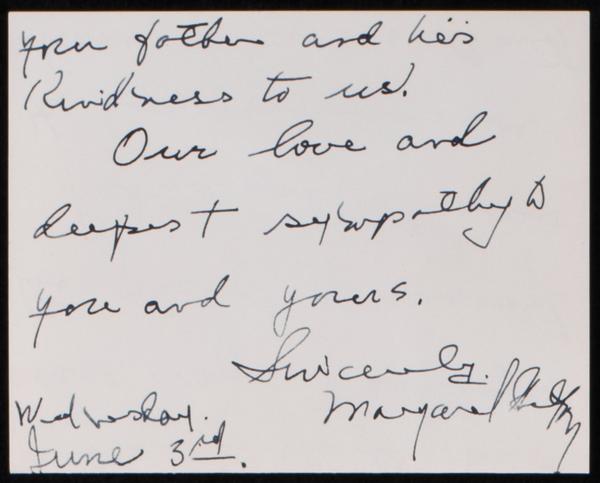 your father and his
kindness to us.
Our love and
deepest sympathy to
you and yours.
Sincerely.
Margaret
Wednesday.
June 3rd.